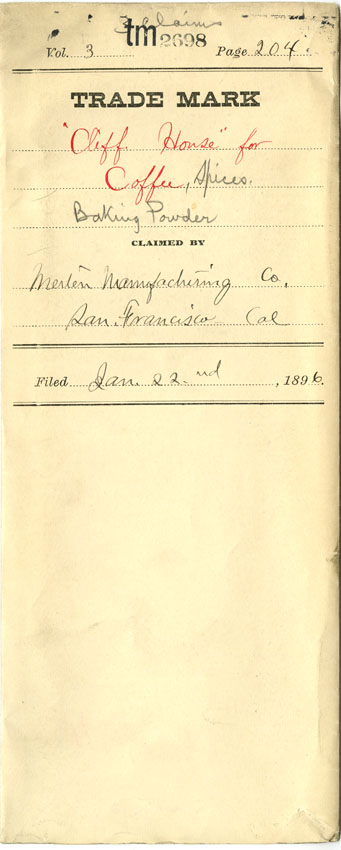 3 Claims
tm 2698
Vol. 3 Page 204.
TRADE MARK
"Cliff House" for
Coffee, Spices.
Baking Powder
CLAIMED BY
Merten Manufacturing Co.
San Francisco Cal
Filed Jan. 22nd, 1896.